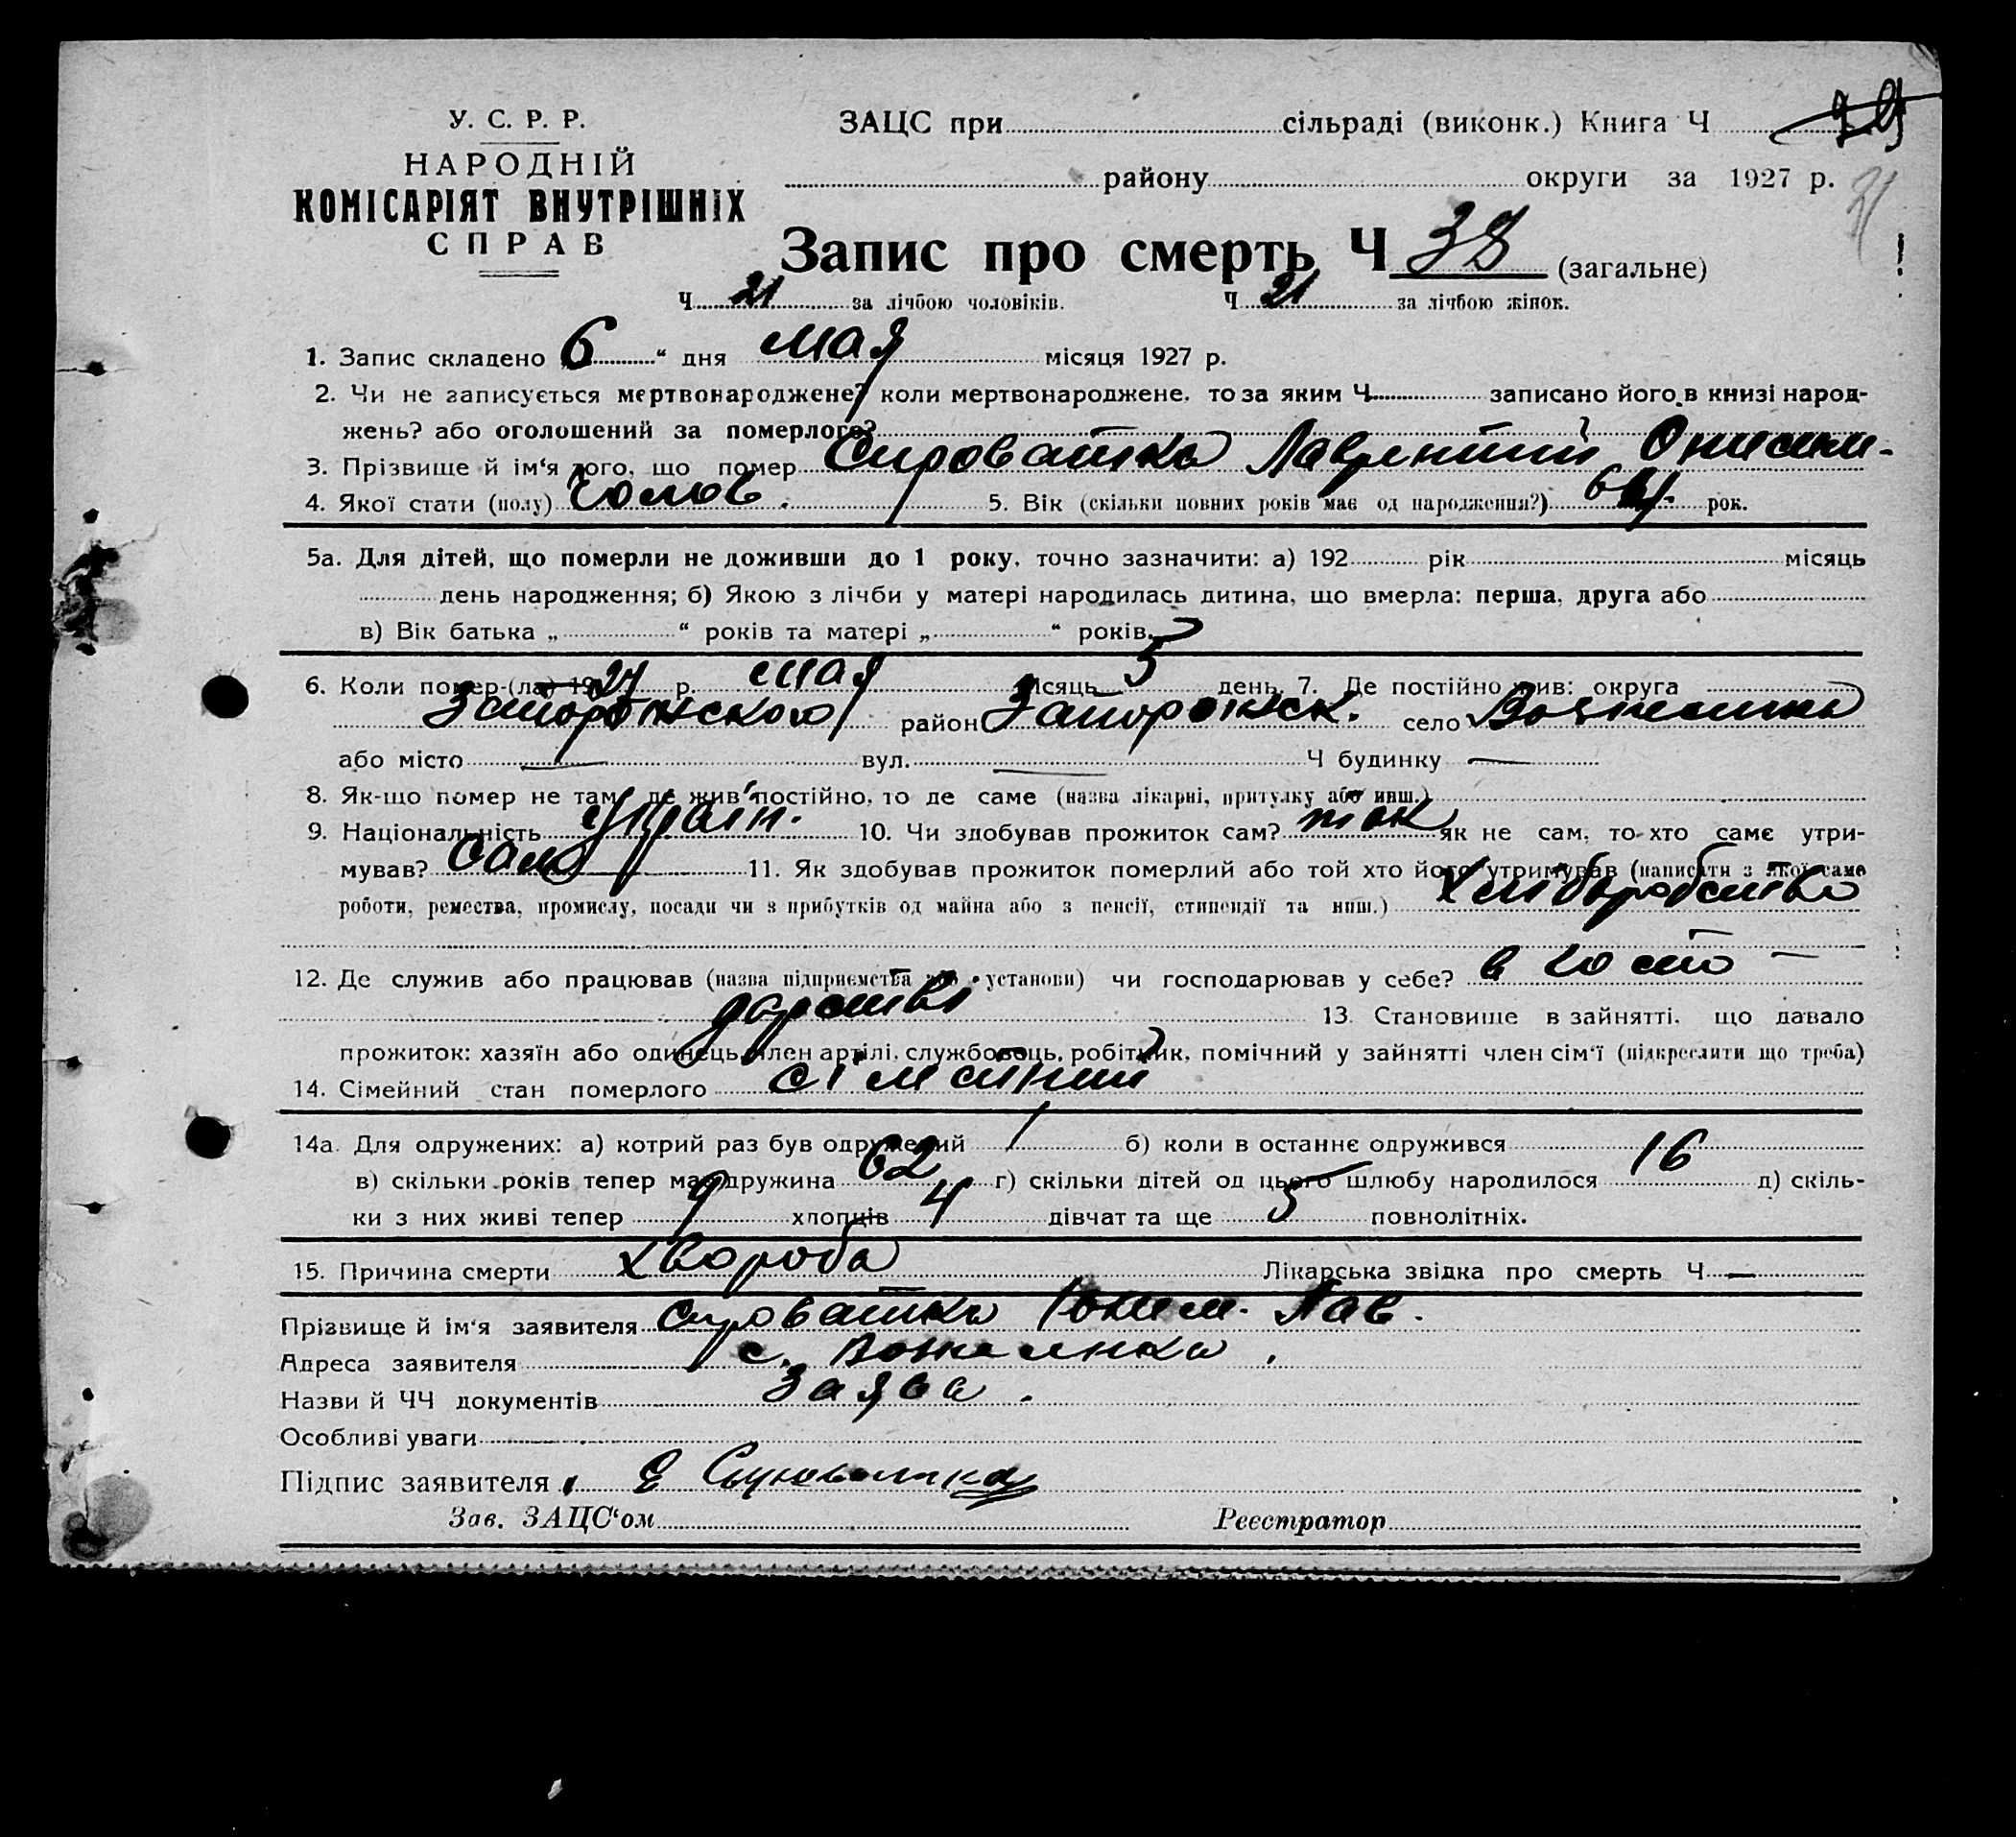 У. С. Р. Р.
НАРОДНІЙ
КОМІСАРІЯТ ВНУТРІШНІХ
СПРАВ
ЗАЦС при сільраді (виконк.) Книга Ч
району округи за 1927 р.
Запис про смерть Ч 38 (загальне)
Ч 21 за лічбою чоловіків. Ч 21 за лічбою жінок.
1. Запис складено 6 “ дня мая місяця 1927 р.
2. Чи не записується мертвонароджене? коли мертвонароджене, то за яким Ч записано його в книзі народ-
жень? або оголошений за померлого?
3. Прізвище й ім‘я того, що помер Сироватка Лаврентий Онисим-
4. Якої стати (полу) Чолов. 5. Вік (скільки повних років має од народження?) рок.
5а. Для дітей, що померли не доживши до 1 року, точно зазначити: а) 192 рік місяць
день народження; б) Якою з лічби у матері народилась дитина, що вмерла: перша, друга або
в) Вік батька „ “ років та матері „ “ років.
6. Коли помер-(ла) 1927 р. мая місяць 5 день. 7. Де постійно жив: округа
Запорожского район Запорожск. село Вознесенка
або місто — вул. — Ч будинку —
8. Як-що помер не там, де жив постійно, то де саме (назва лікарні, притулку або инш.)
9. Національність Украін. 10. Чи здобував прожиток сам? так як не сам, то-хто саме утри-
мував? Сам 11. Як здобував прожиток померлий або той хто його утримував (написати з якої саме
роботи, ремества, промислу, посади чи з прибутків од майна або з пенсії, стипендії та инш.) Хлибробство
12. Де служив або працював (назва підприємства або установи) чи господарював у себе? в госпо-
дарстві 13. Становище в зайнятті, що давало
прожиток: хазяїн або одинець, член артілі, службовець, робітник, помічний у зайнятті член сім‘ї (підкреслити що треба)
14. Сімейний стан померлого сімейний
14а. Для одружених: а) котрий раз був одружений 1 б) коли в останнє одружився
в) скільки років тепер має дружина 62 г) скільки дітей од цього шлюбу народилося 16 д) скіль-
ки з них живі тепер 9 хлопців 4 дівчат та ще 5 повнолітніх.
15. Причина смерти хвороба Лікарська звідка про смерть Ч —
Прізвище й ім‘я заявителя Сироватка Лав.
Адреса заявителя с. Вознесенка
Назви й ЧЧ документів Заява.
Особливі уваги
Підпис заявителя Сыроватка
Зав. ЗАЦС‘ом Реєстратор